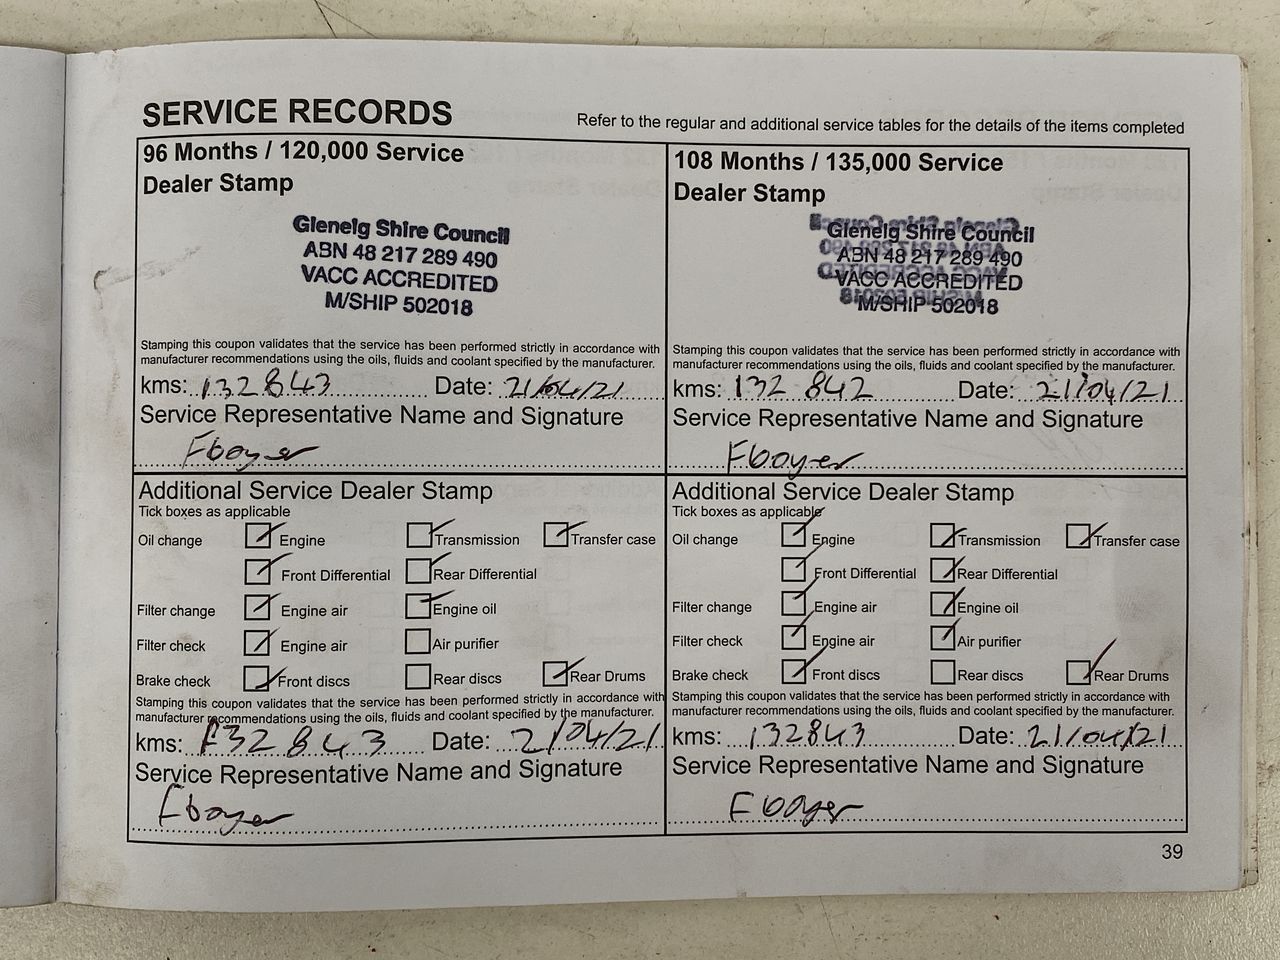 SERVICE RECORDS
Refer to the regular and additional service tables for the details of the items completed
96 Months / 120,000 Service
Dealer Stamp
Glenelg Shire Council
ABN 48 217 289 490
VACC ACCREDITED
M/SHIP 502018
Stamping this coupon validates that the service has been performed strictly in accordance with
manufacturer recommendations using the oils, fluids and coolant specified by the manufacturer.
kms: 132843 Date: 21/04/21
Service Representative Name and Signature
Fboyer
Additional Service Dealer Stamp
Tick boxes as applicable
Oil change Engine Transmission Transfer case
Front Differential Rear Differential
Filter change Engine air Engine oil
Filter check Engine air Air purifier
Brake check Front discs Rear discs Rear Drums
Stamping this coupon validates that the service has been performed strictly in accordance with
manufacturer recommendations using the oils, fluids and coolant specified by the manufacturer.
kms: 132843 Date: 21/04/21
Service Representative Name and Signature
Fboyer
108 Months / 135,000 Service
Dealer Stamp
Glenelg Shire Council
ABN 48 217 289 490
VACC ACCREDITED
M/SHIP 502018
Stamping this coupon validates that the service has been performed strictly in accordance with
manufacturer recommendations using the oils, fluids and coolant specified by the manufacturer.
kms: 132 842 Date: 21/04/21
Service Representative Name and Signature
Fboyer
Additional Service Dealer Stamp
Tick boxes as applicable
Oil change Engine Transmission Transfer case
Front Differential Rear Differential
Filter change Engine air Engine oil
Filter check Engine air Air purifier
Brake check Front discs Rear discs Rear Drums
Stamping this coupon validates that the service has been performed strictly in accordance with
manufacturer recommendations using the oils, fluids and coolant specified by the manufacturer.
kms: 132843 Date: 21/04/21
Service Representative Name and Signature
Fboyer
39